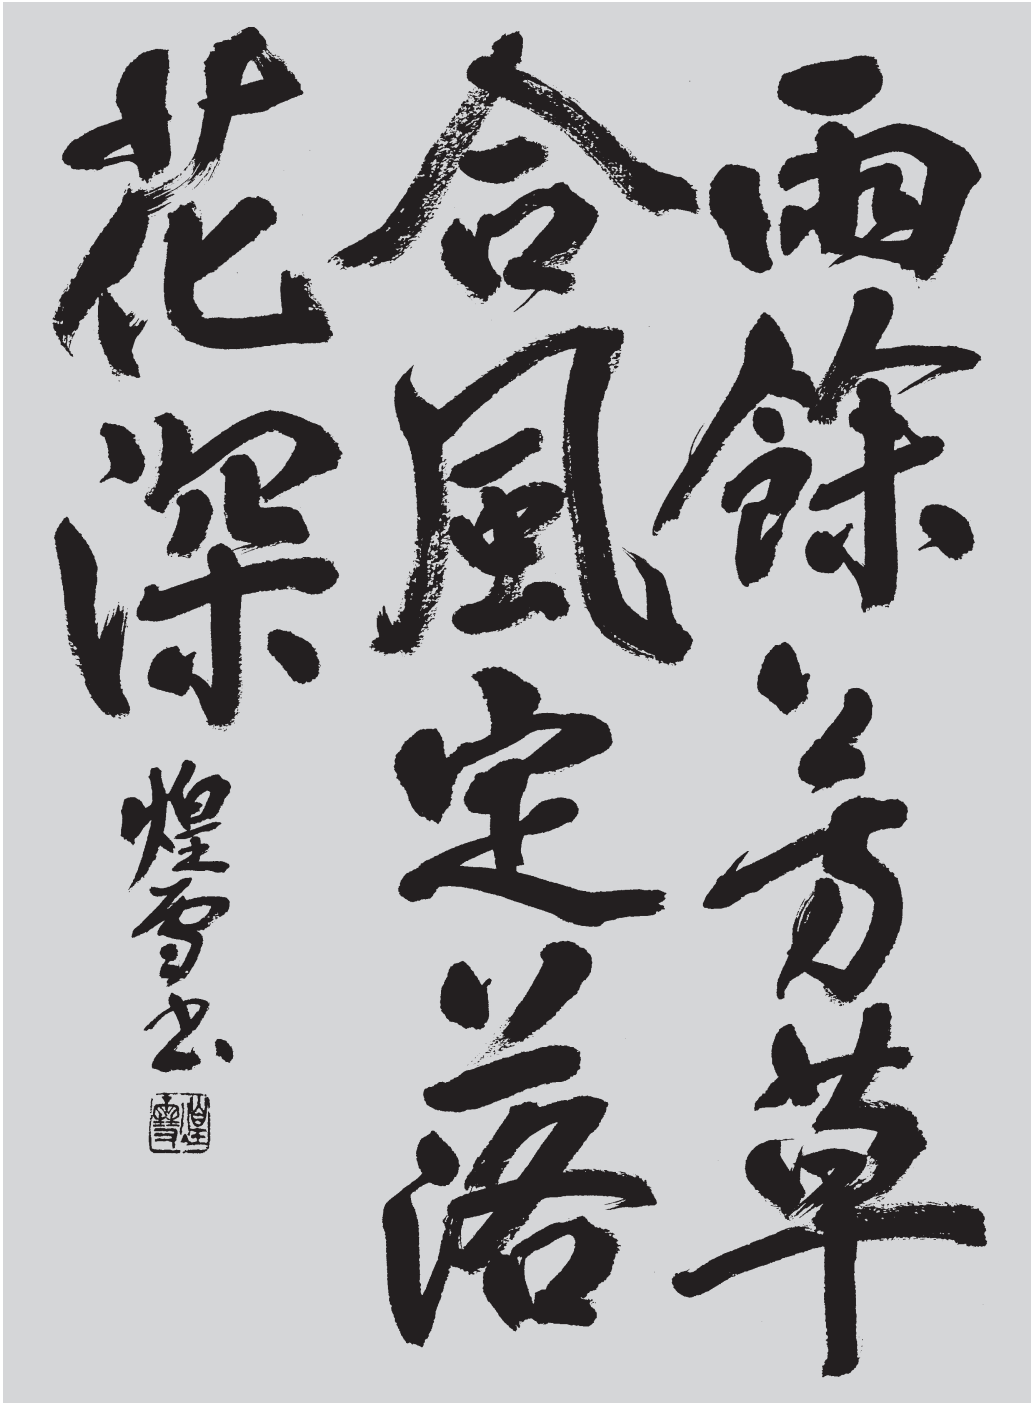 雨餘芳草
合風定落
花深
煌雪書
煌雪